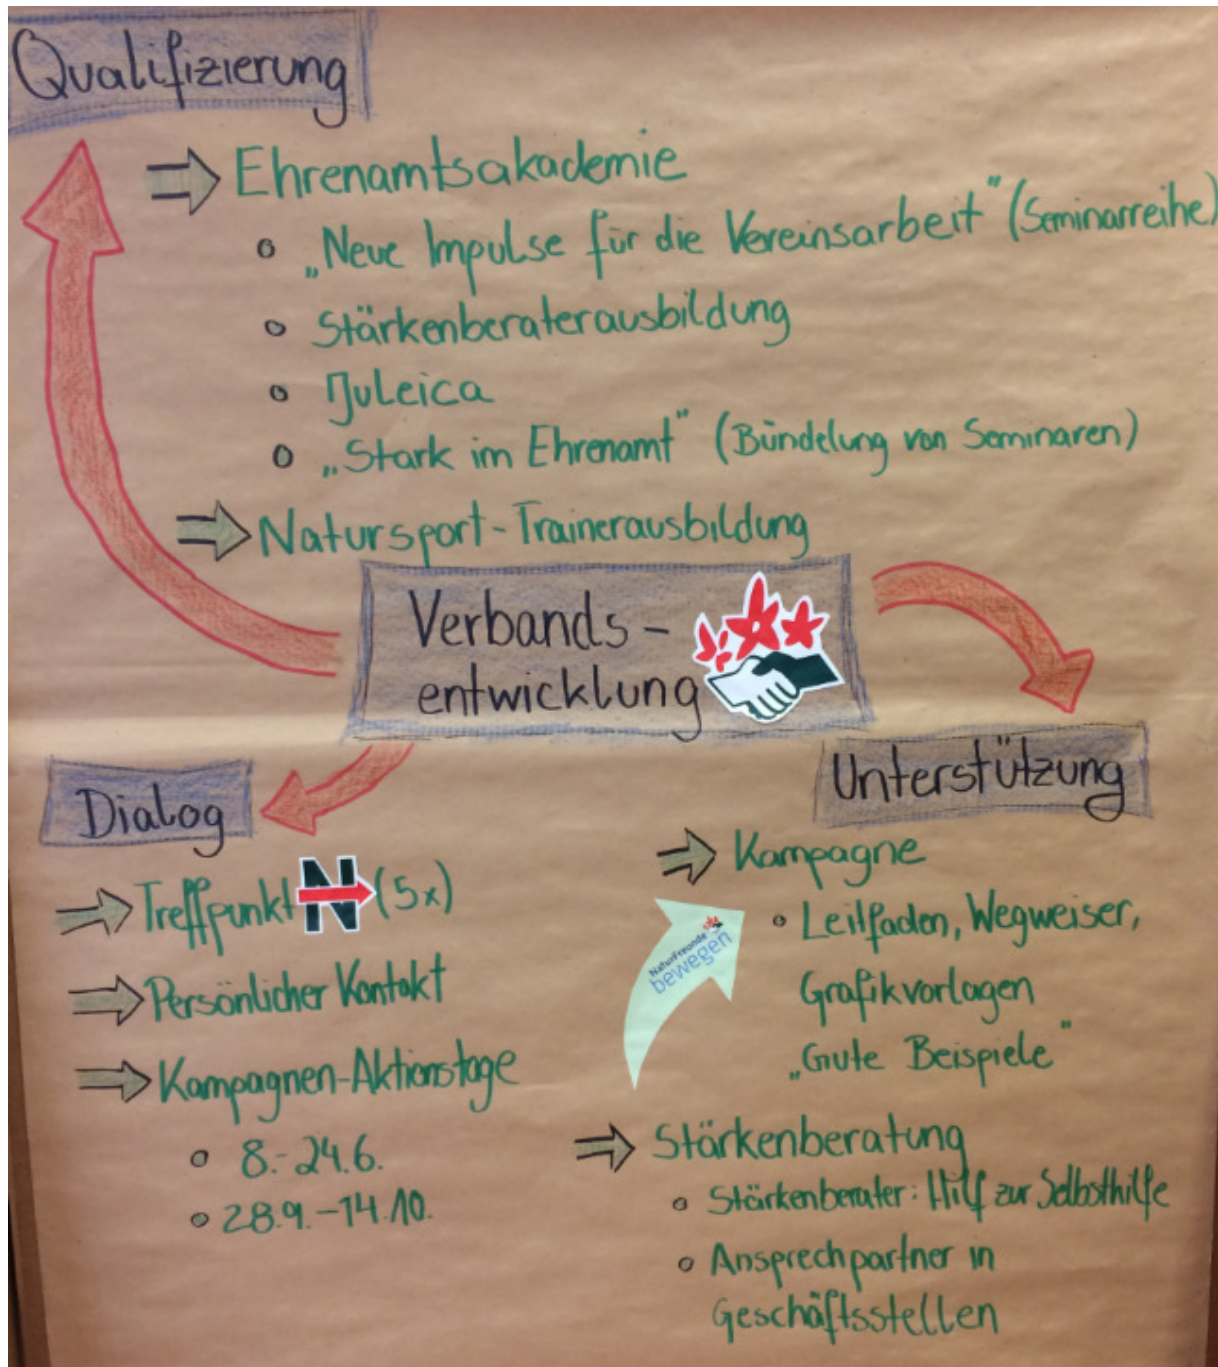 Qualifizierung
Ehrenamtsakademie
„Neue Impulse für die Vereinsarbeit" (Seminarreihe)
Stärkenberaterausbildung
Juleica
„Stark im Ehrenamt" (Bündelung von Seminaren)
Natursport-Trainerausbildung
Verbands-
entwicklung
Dialog
Treffpunkt N (5x)
Persönlicher Kontakt
Kampagnen-Aktionstage
8.-24.6.
28.9.-14.10.
Unterstützung
Kampagne
Leitfaden, Wegweiser,
Grafikvorlagen
„Gute Beispiele"
NaturFreunde
bewegen
Stärkenberatung
Stärkenberater: Hilf zur Selbsthilfe
Ansprechpartner in
Geschäftsstellen